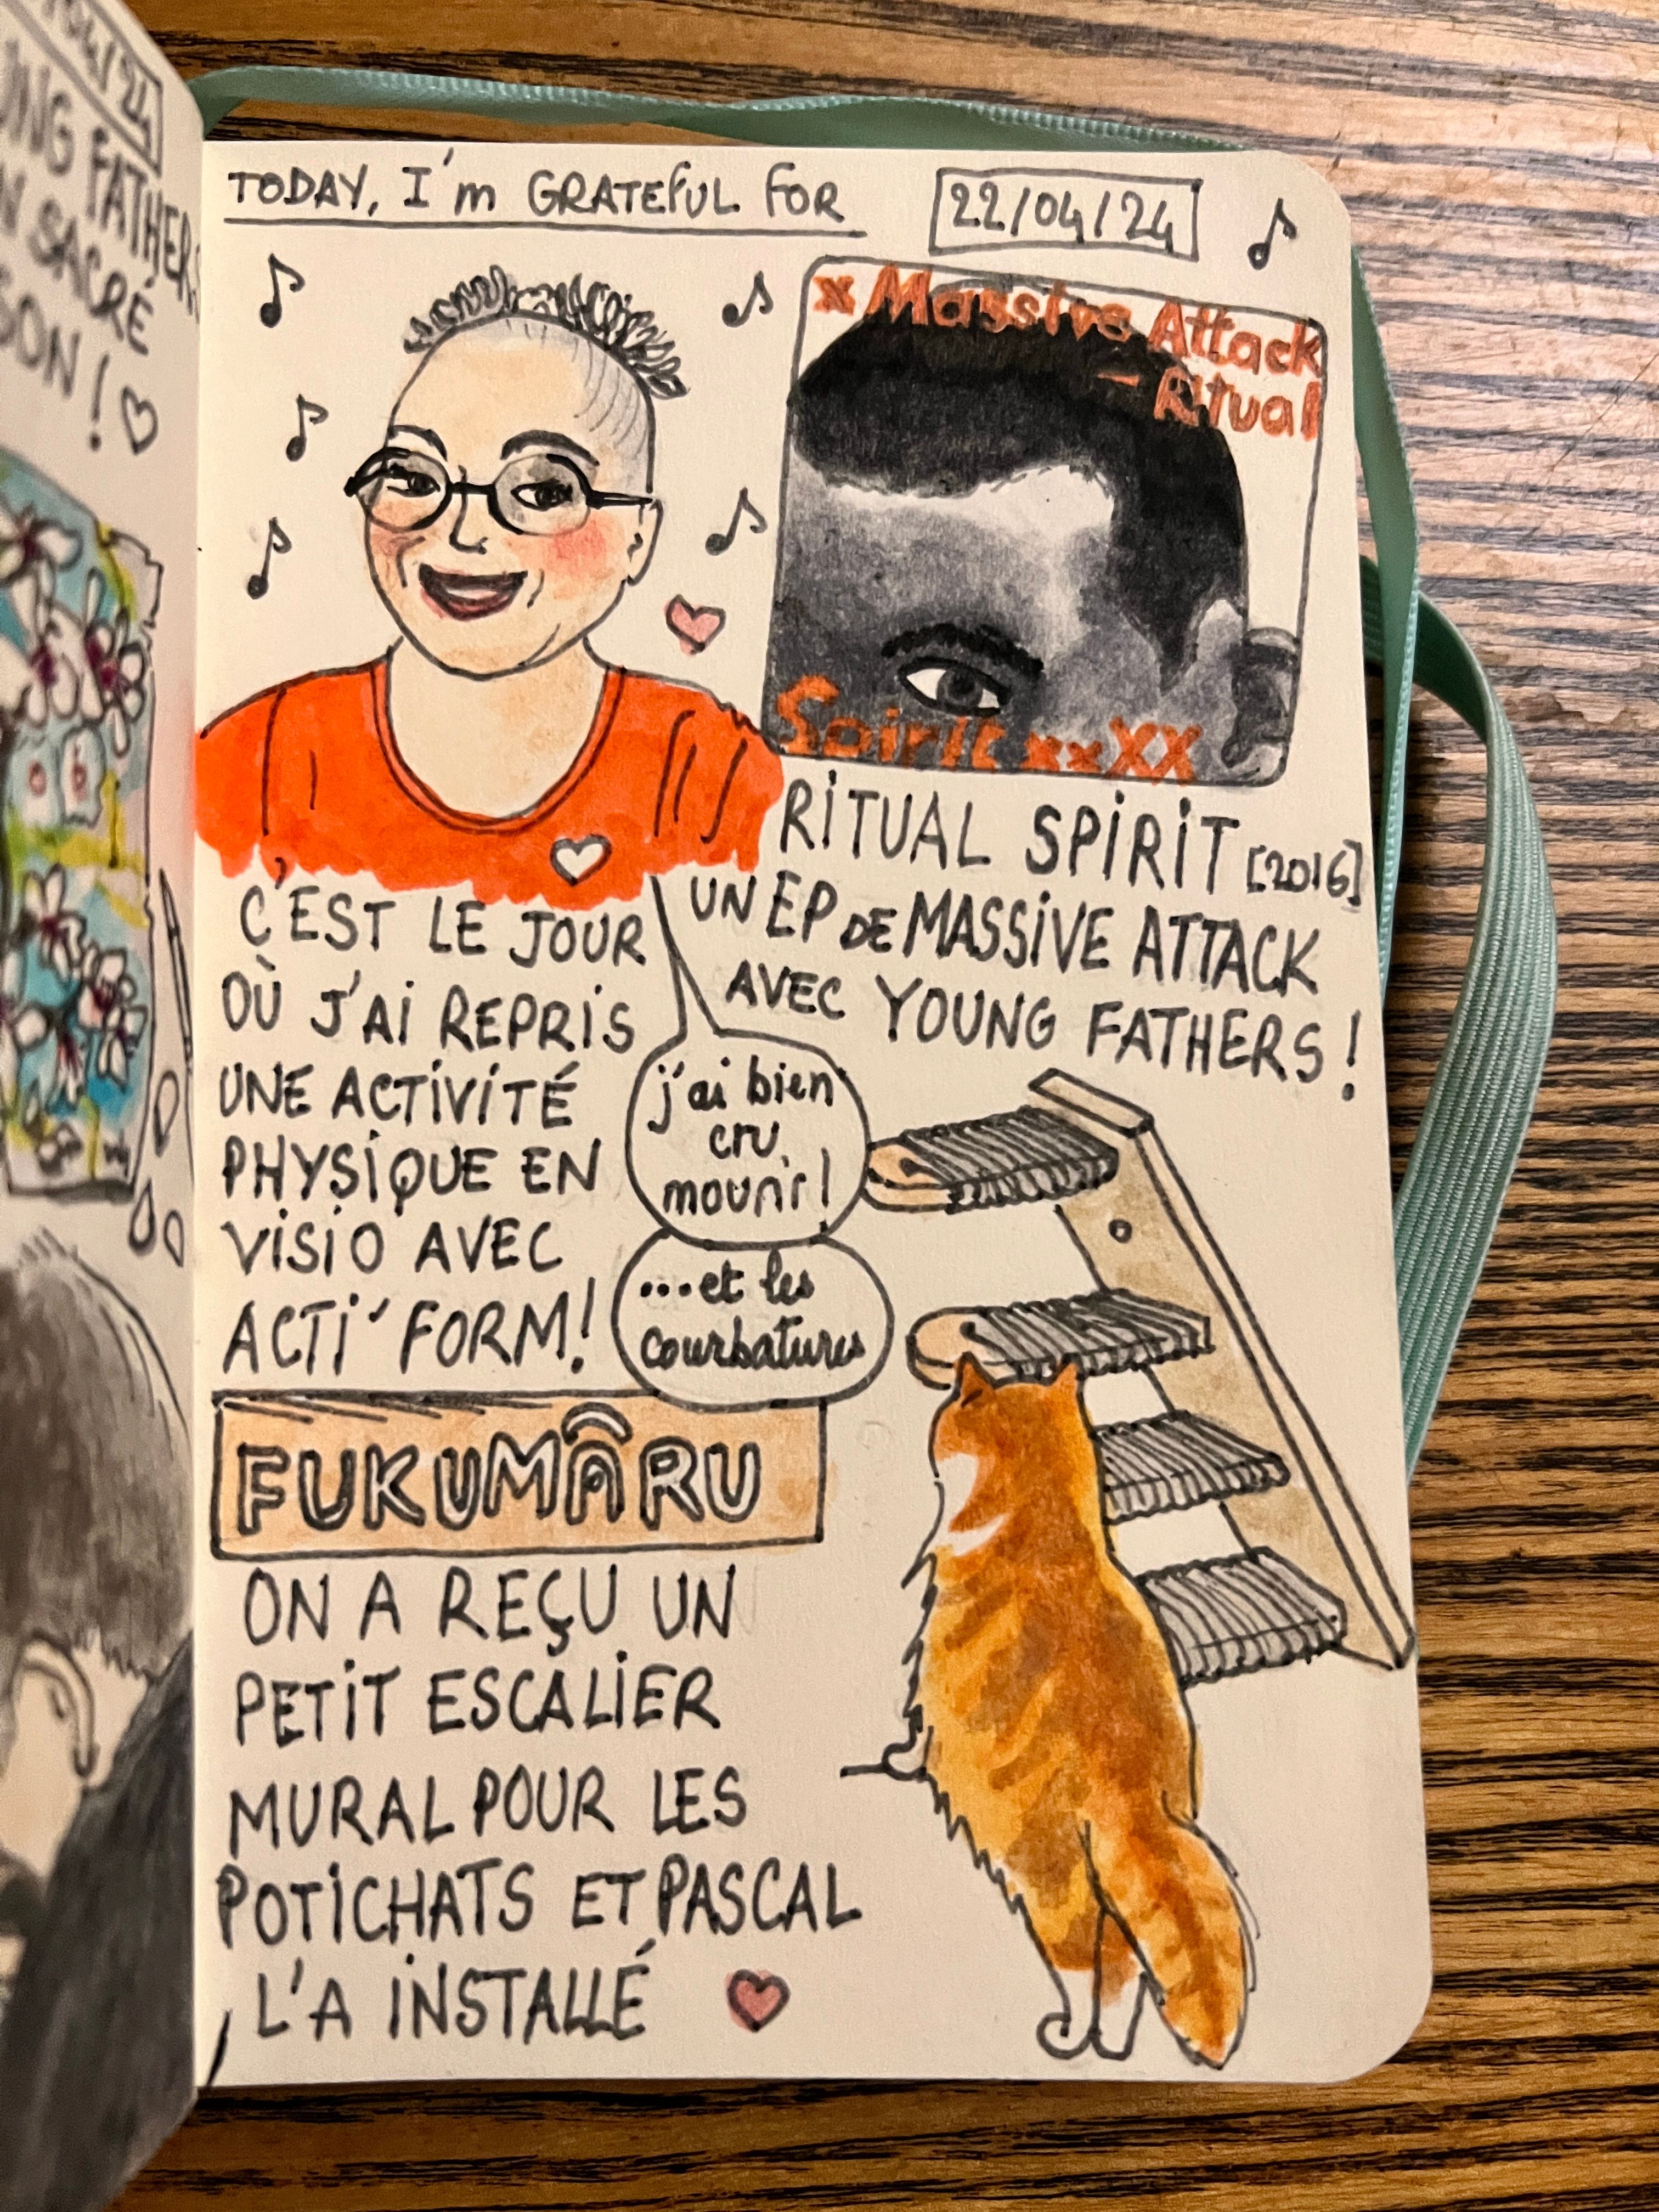 /04/24
UNG FATHERS
N SACRÉ
SON !
TODAY, I'm GRATEFUL FOR
22/04/24
x Massive Attack
- Ritual
Spirit xxXX
RITUAL SPIRIT [2016]
UN EP DE MASSIVE ATTACK
AVEC YOUNG FATHERS !
C'EST LE JOUR
OÙ J'AI REPRIS
UNE ACTIVITÉ
PHYSIQUE EN
VISIO AVEC
ACTI'FORM !
j'ai bien
cru
mourir !
...et les
courbatures
FUKUMARU
ON A REÇU UN
PETIT ESCALIER
MURAL POUR LES
POTICHATS ET PASCAL
L'A INSTALLÉ